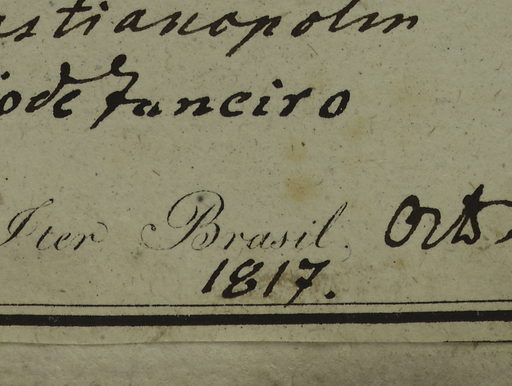 astianopolin
io de Janeiro
Iter Brasil. Octb
1817.